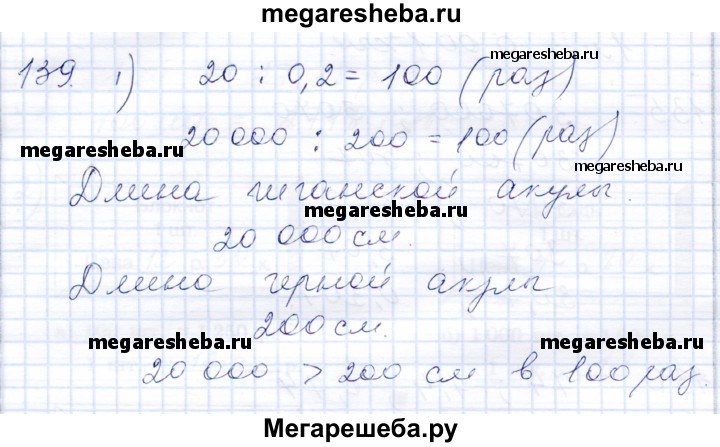 megaresheba.ru
139. 1) 20 : 0,2 = 100 (раз)
megaresheba.ru
20 000 : 200 = 100 (раз)
megaresheba.ru
megaresheba.ru
Длина гиганской акулы.
megaresheba.ru
20 000 см.
Длина черной акулы
200 см.
megaresheba.ru
megaresheba.ru
20 000 > 200 см в 100 раз.
Мегарешеба.ру